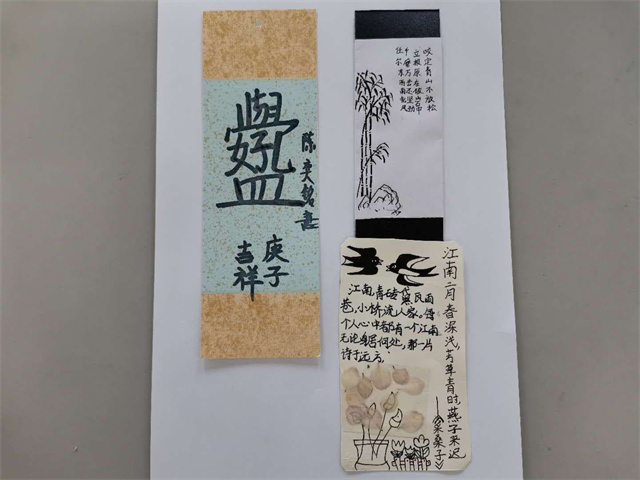 陈奕铭書
庚子
吉祥
咬定青山不放松
立根原在破岩中
千磨万击还坚劲
任尔东西南北风
江南二月春深浅,芳草青时,燕子来迟
——《采桑子》
江南,青砖黛瓦雨
巷,小桥流人家。每
个人心中都有一个江南
无论身居何处,那一片
诗于远方。